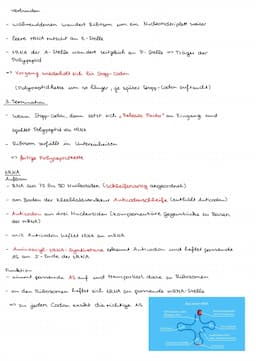 verbunden
- währenddessen wandert Ribosom um ein Nucleotidtriplett weiter
- leere tRNA entsteht an E-Stelle
- tRNA der A-Stelle wandert zeitgleich zu P-Stelle => Träger der
Polypeptid
-> Vorgang wiederholt sich bis Stopp-Codon
(Polypeptidkette um so länger, je später Stopp-Codon auftaucht)
3. Termination
- wenn Stopp-Codon, dann setzt sich "Release Factor" an Eingang und
spaltet Polypeptid von tRNA
- Ribosom zerfällt in Untereinheiten
=> fertige Polypeptidkette
tRNA
Aufbau
- RNA aus 73 bis 90 Nucleotiden (schleifenartig angeordnet)
- am Boden der Kleeblattstruktur Anticodonschleife (enthält Anticodon)
- Anticodon aus drei Nucleotiden (komplementäre Gegenstücke zu Basen
der mRNA)
- mit Anticodon heftet tRNA an mRNA
- Aminoacyl-tRNA-Synthetase erkennt Anticodon und heftet passende
AS an 3'-Ende der tRNA
Funktion
- nimmt passende AS auf und transportiert diese zu Ribosomen
- an den Ribosomen heftet sich tRNA an passende mRNA-Stelle
=> zu jedem Codon ensteht die richtige AS